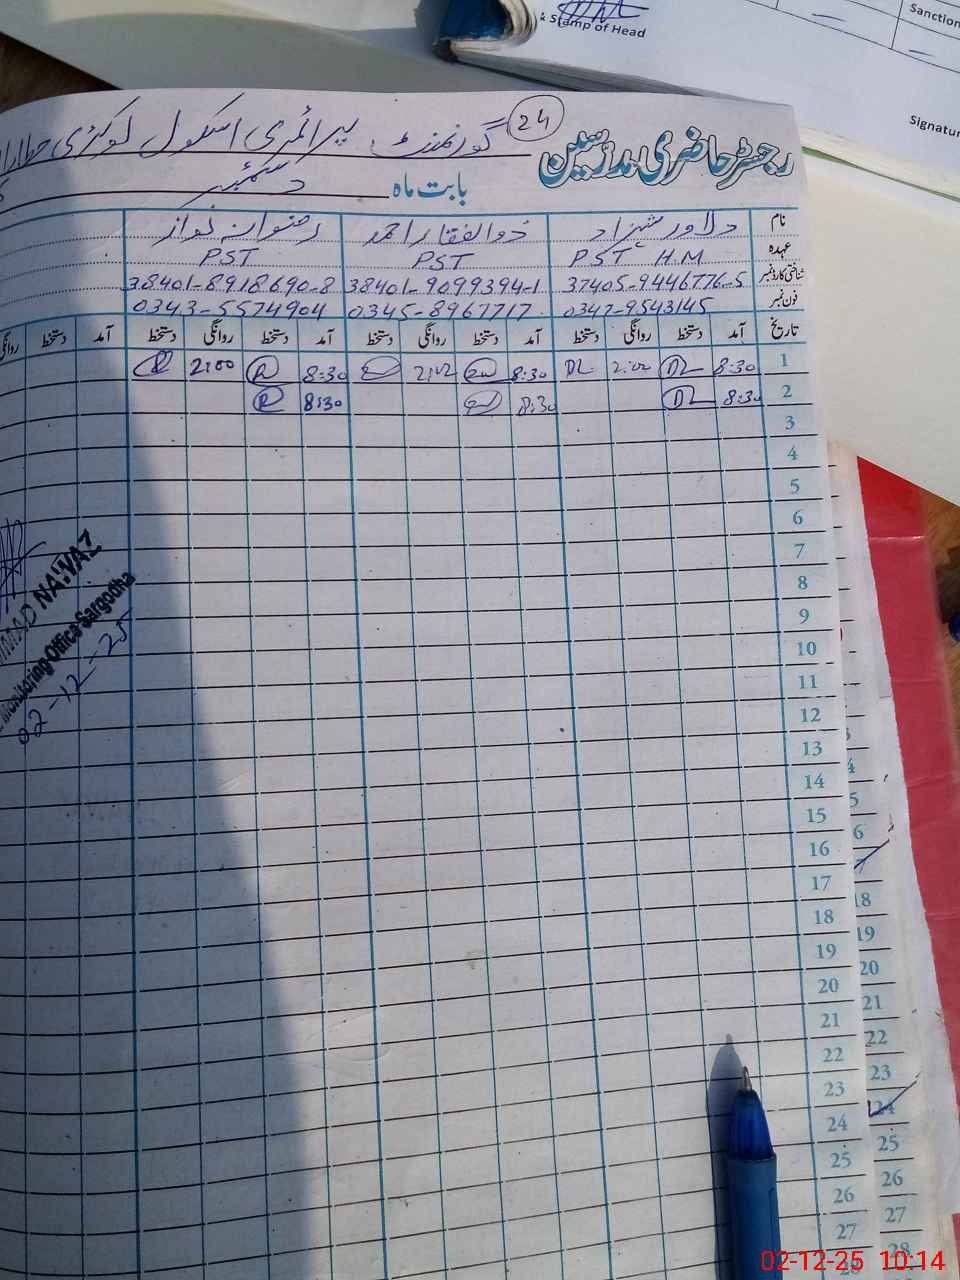 & Stamp of Head
Sanction
Signatur
24
رجسٹر حاضری مدرسین
گورنمنٹ پرائمری اسکول
بابت ماہ دسمبر
نام دلاور شہزاد ذوالفقار احمد رضوان نواز
عہدہ PST H.M PST PST
شناختی کارڈ نمبر 37405-9446776-5 38401-9099394-1 38401-8918690-8
فون نمبر 0347-9543145 0345-8967717 0343-5574904
تاریخ آمد دستخط روانگی دستخط آمد دستخط روانگی دستخط آمد دستخط روانگی دستخط آمد دستخط روانگی
1 8:30 DL 2:00 DL 8:30 2:00 8:30 R 2:00 R
2 8:30 DL 8:30 8:30 R
3
4
5
6
7
8
9
10
11
12
13
14
15
16
17
18
19
20
21
22
23
24
25
26
27
28
NAWAZ
Monitoring Office Sargodha
02-12-25
18
19
20
21
22
23
24
25
26
27
28
02-12-25 10:14